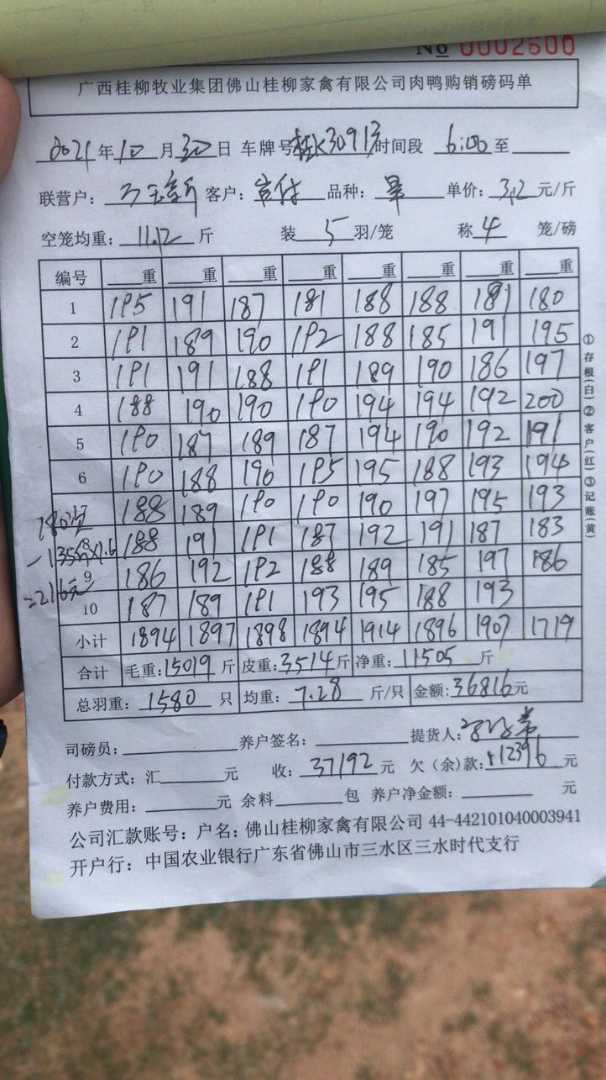 No 0002600
广西桂柳牧业集团佛山桂柳家禽有限公司肉鸭购销磅码单
2021年10月30日 车牌号 30913 时间段 6:00 至
联营户： 客户： 品种： 单价：3.2元/斤
空笼均重：11.12斤 装5羽/笼 称4笼/磅
编号 重 重 重 重 重 重 重 重
1 195 191 187 181 188 188 181 180
2 191 189 190 192 188 185 191 195
3 191 191 188 191 189 190 186 197
4 188 190 190 190 194 194 192 200
5 190 187 189 187 194 190 192 191
6 190 188 190 195 195 188 193 194
188 189 190 190 190 197 195 193
8 188 191 191 187 192 191 187 183
9 186 192 192 188 189 185 197 186
10 187 189 191 193 195 188 193
-135 ×1.6
=216元
小计 1894 1897 1898 1894 1914 1896 1907 1719
合计 毛重：15019斤 皮重：3514斤 净重：11505斤
总羽重：1580只 均重：7.28斤/只 金额：36816元
司磅员： 养户签名： 提货人：
付款方式：汇 元 收：37192元 欠（余）款：+12396元
养户费用： 元 余料 包 养户净金额： 元
公司汇款账号：户名：佛山桂柳家禽有限公司 44-442101040003941
开户行：中国农业银行广东省佛山市三水区三水时代支行
①存根(白)②客户(红)③记账(黄)